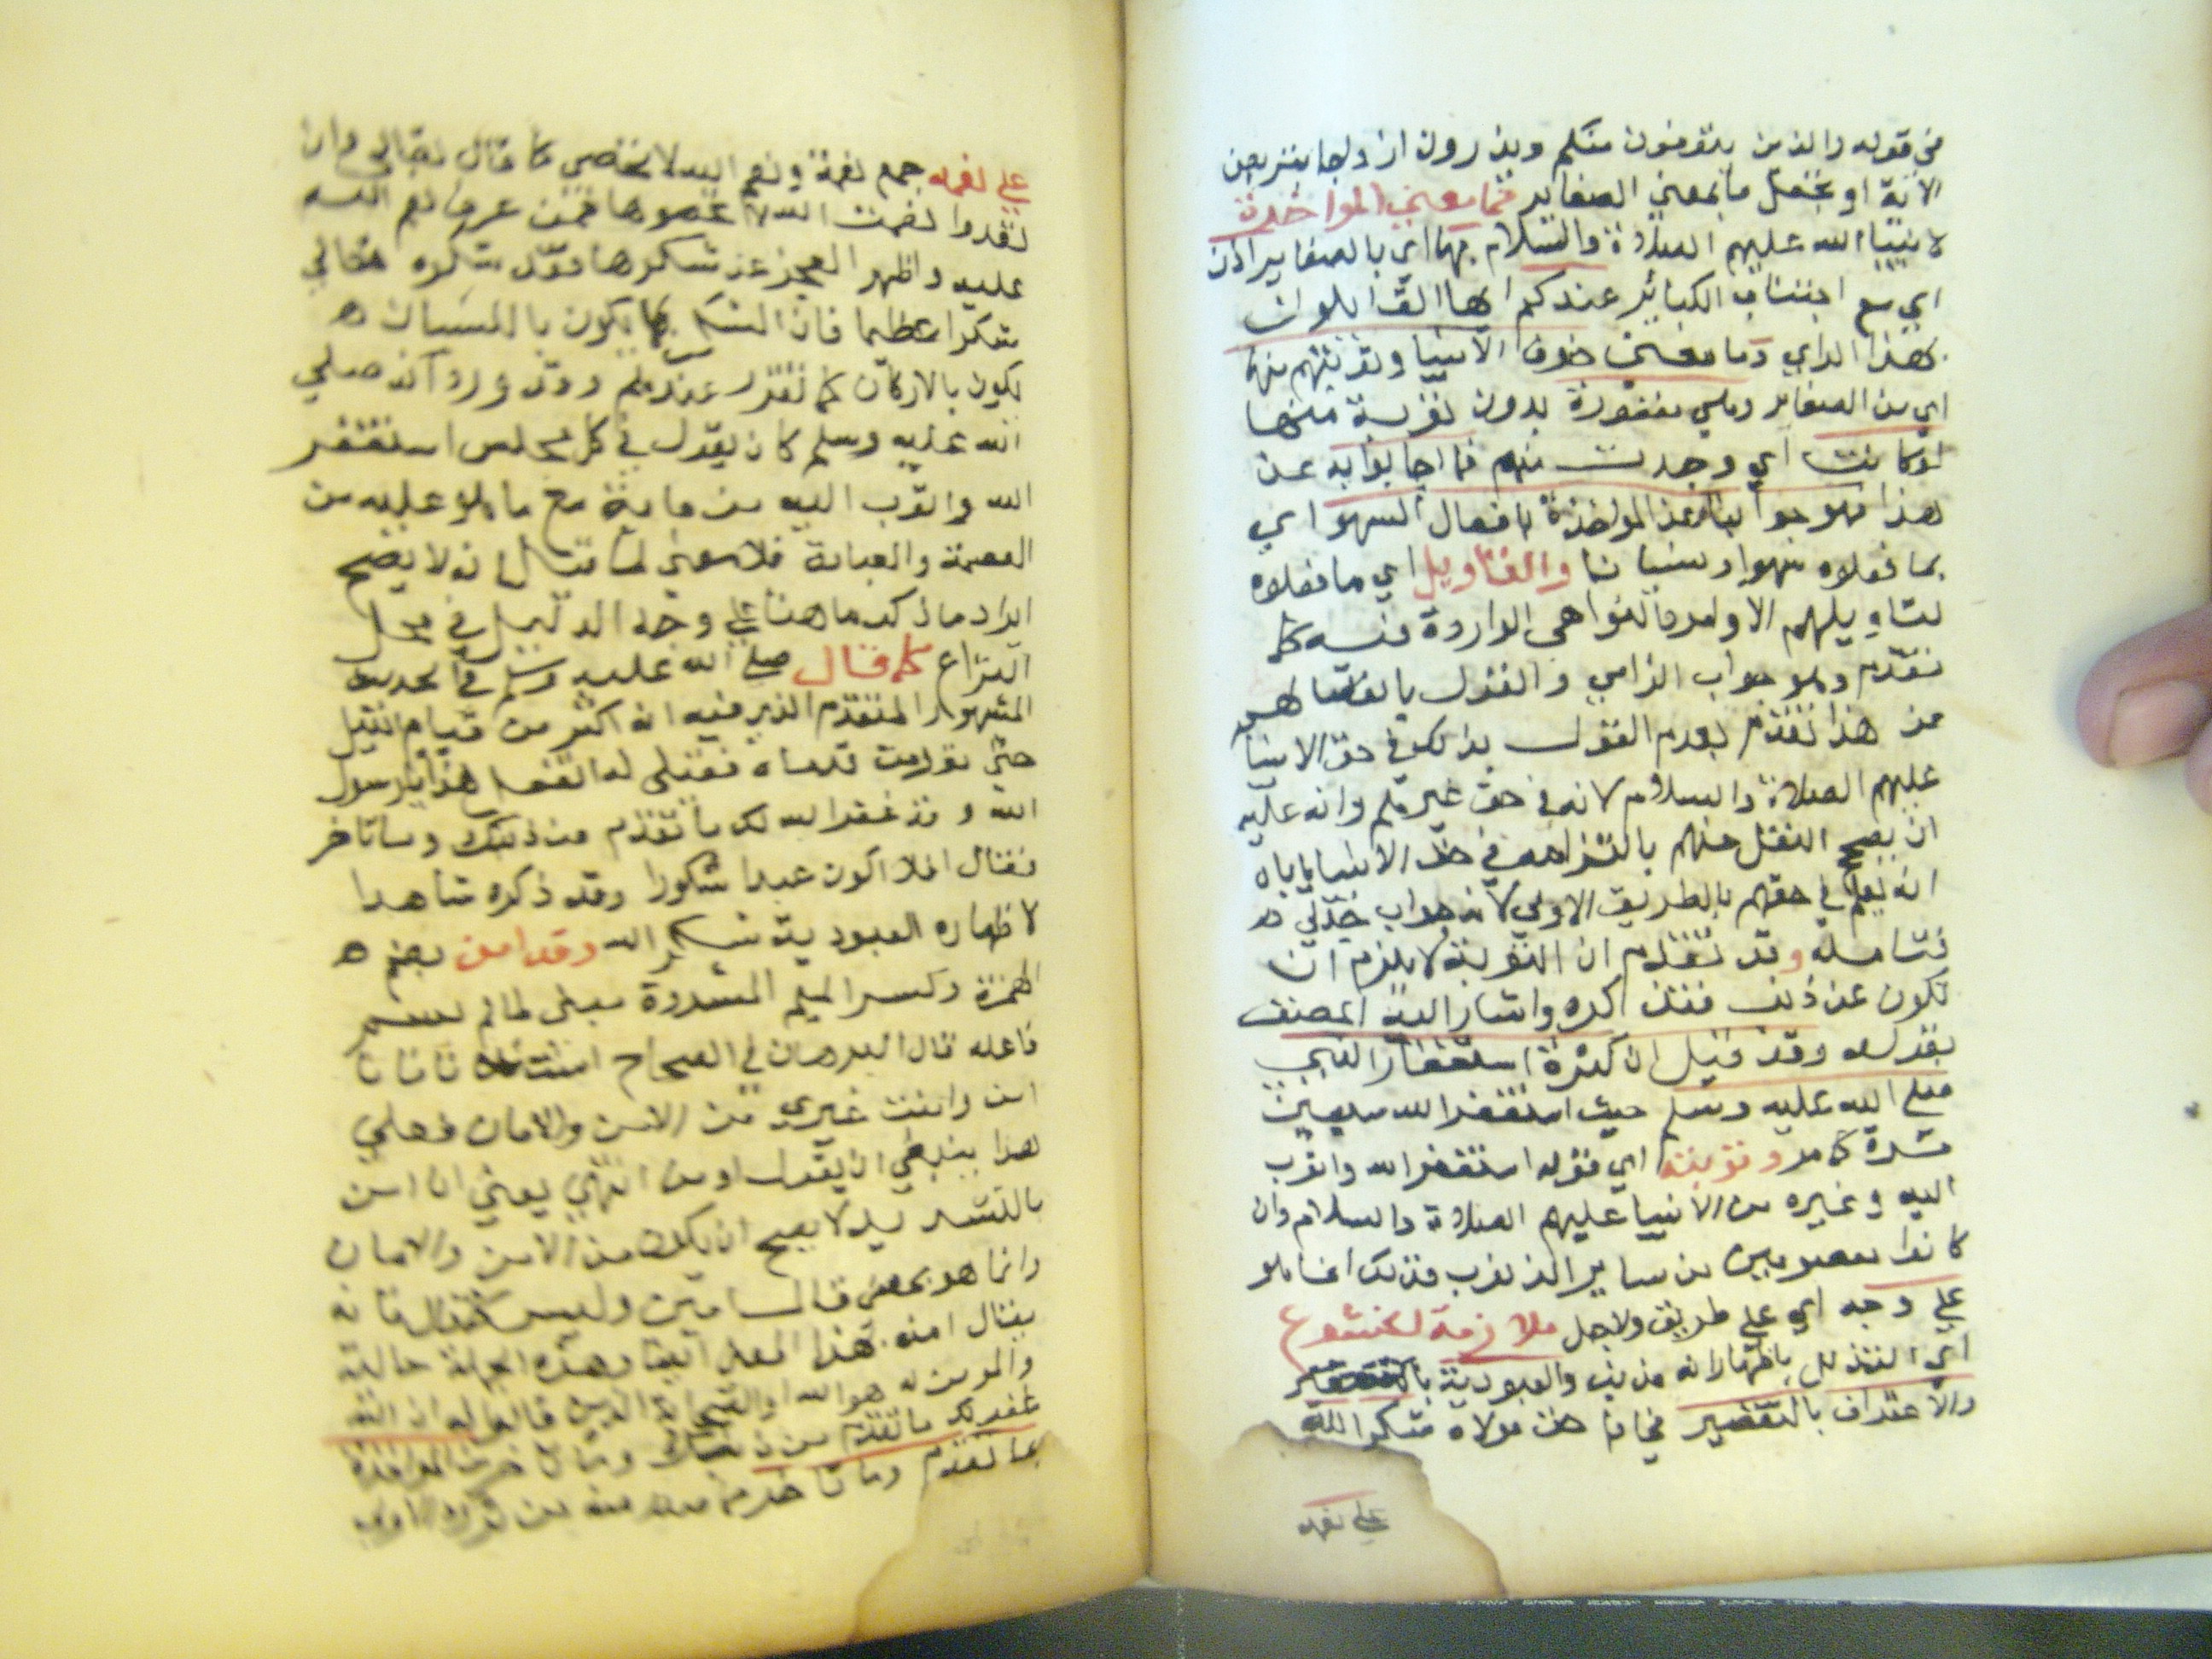 من قوله والذين يتوفون منكم ويذرون ازواجا يتربصن
الاية او بجعل ما بمعنى الصغاير فما معنى المواخذة
لانبيا الله عليهم الصلاة والسلام بها اي بالصغاير اذن
اي مع اجتناب الكبائر عندكم ايها القايلون
بهذا الراي وما معنى خوف الانبيا وتوبتهم منها
اي من الصغاير وهي مغفورة بدون توبة منها
لو كانت اي وجدت منهم فما اجابوا به عن
هذا فهو جوابنا عن المواخذة بافعال السهو اي
بما فعلوه سهوا ونسيانا والتاويل اي ما فعلوه
لتاويلهم الاوامر والنواهي الواردة فيه كما
تقدم وهو جواب الزامي والقول بانفصالهم
عن هذا تقدم لعدم القول بذلك في حق الانبيا
عليهم الصلاة والسلام لانه في حق غيرهم وانه عليه
ان يصح النقل عنهم بالتزامه في حق الانبيا
انه يعلم في حقهم بالطريق الاولى لانه جواب جدلي
فتامله وقد تقدم ان التوبة لا يلزم ان
تكون عن ذنب فتذكره واشار اليه المصنف
بقوله وقد قيل ان كثرة استغفار النبي
صلى الله عليه وسلم حيث استغفر الله سبعين
مرة كما مر وتوبته اي قوله استغفر الله واتوب
اليه وغيره من الانبيا عليهم الصلاة والسلام وان
كانوا معصومين من ساير الذنوب فذلك انما هو
على وجه اي على طريق ولاجل ملازمة الخشوع
اي التذلل باظهار انه مذنب والعبودية
والاعتراف بالتقصير في حق مولاه شكرا لله
على نعمه
على نعمه جمع نعمة ونعم الله لا تحصى كما قال تعالى وان
تعدوا نعمت الله لا تحصوها فمن عرف نعم الله
عليه واظهر العجز عن شكرها فقد شكره تعالى
شكرا عظيما فان الشكر كما يكون باللسان
يكون بالاركان كما تقرر عندهم وقد ورد انه صلى
الله عليه وسلم كان يقول في كل مجلس استغفر
الله واتوب اليه من ماية مع ما هو عليه من
العصمة والعبادة فلا معنى لما قيل انه لا يصح
ايراد ما ذكره هنا على وجه الدليل في محل
النزاع كما قال صلى الله عليه وسلم في الحديث
المشهور المتقدم الذي فيه انه اكثر من قيام الليل
حتى تورمت قدماه فقيل له اتفعل هذا يا رسول
الله وقد غفر الله لك ما تقدم من ذنبك وما تاخر
فقال افلا اكون عبدا شكورا وقد ذكره شاهدا
لاظهاره العبودية شكر الله وقد امن بضم
الهمزة وكسر الميم المشددة مبني لما لم يسم
فاعله قال البرهان في الصحاح امنت فانا
امن وامنت غيري من الامن والامان فعلى
هذا ينبغي ان يقول اومن انتهى يعني ان امن
بالتشديد لا يصح ان يكون من الامن والامان
وانما هو بمعنى قال امين وليس كما قال فانه
يقال امنه بهذا المعنى ايضا وهذه الجملة حالية
والمومن له هو الله او الصحابة الذين قالوا له ان الله
غفر لك ما تقدم من ذنبك وما تاخر من المواخذة
بما تقدم وما تاخر